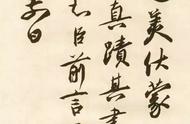 美伏蒙
真蹟其書
臣前言
日